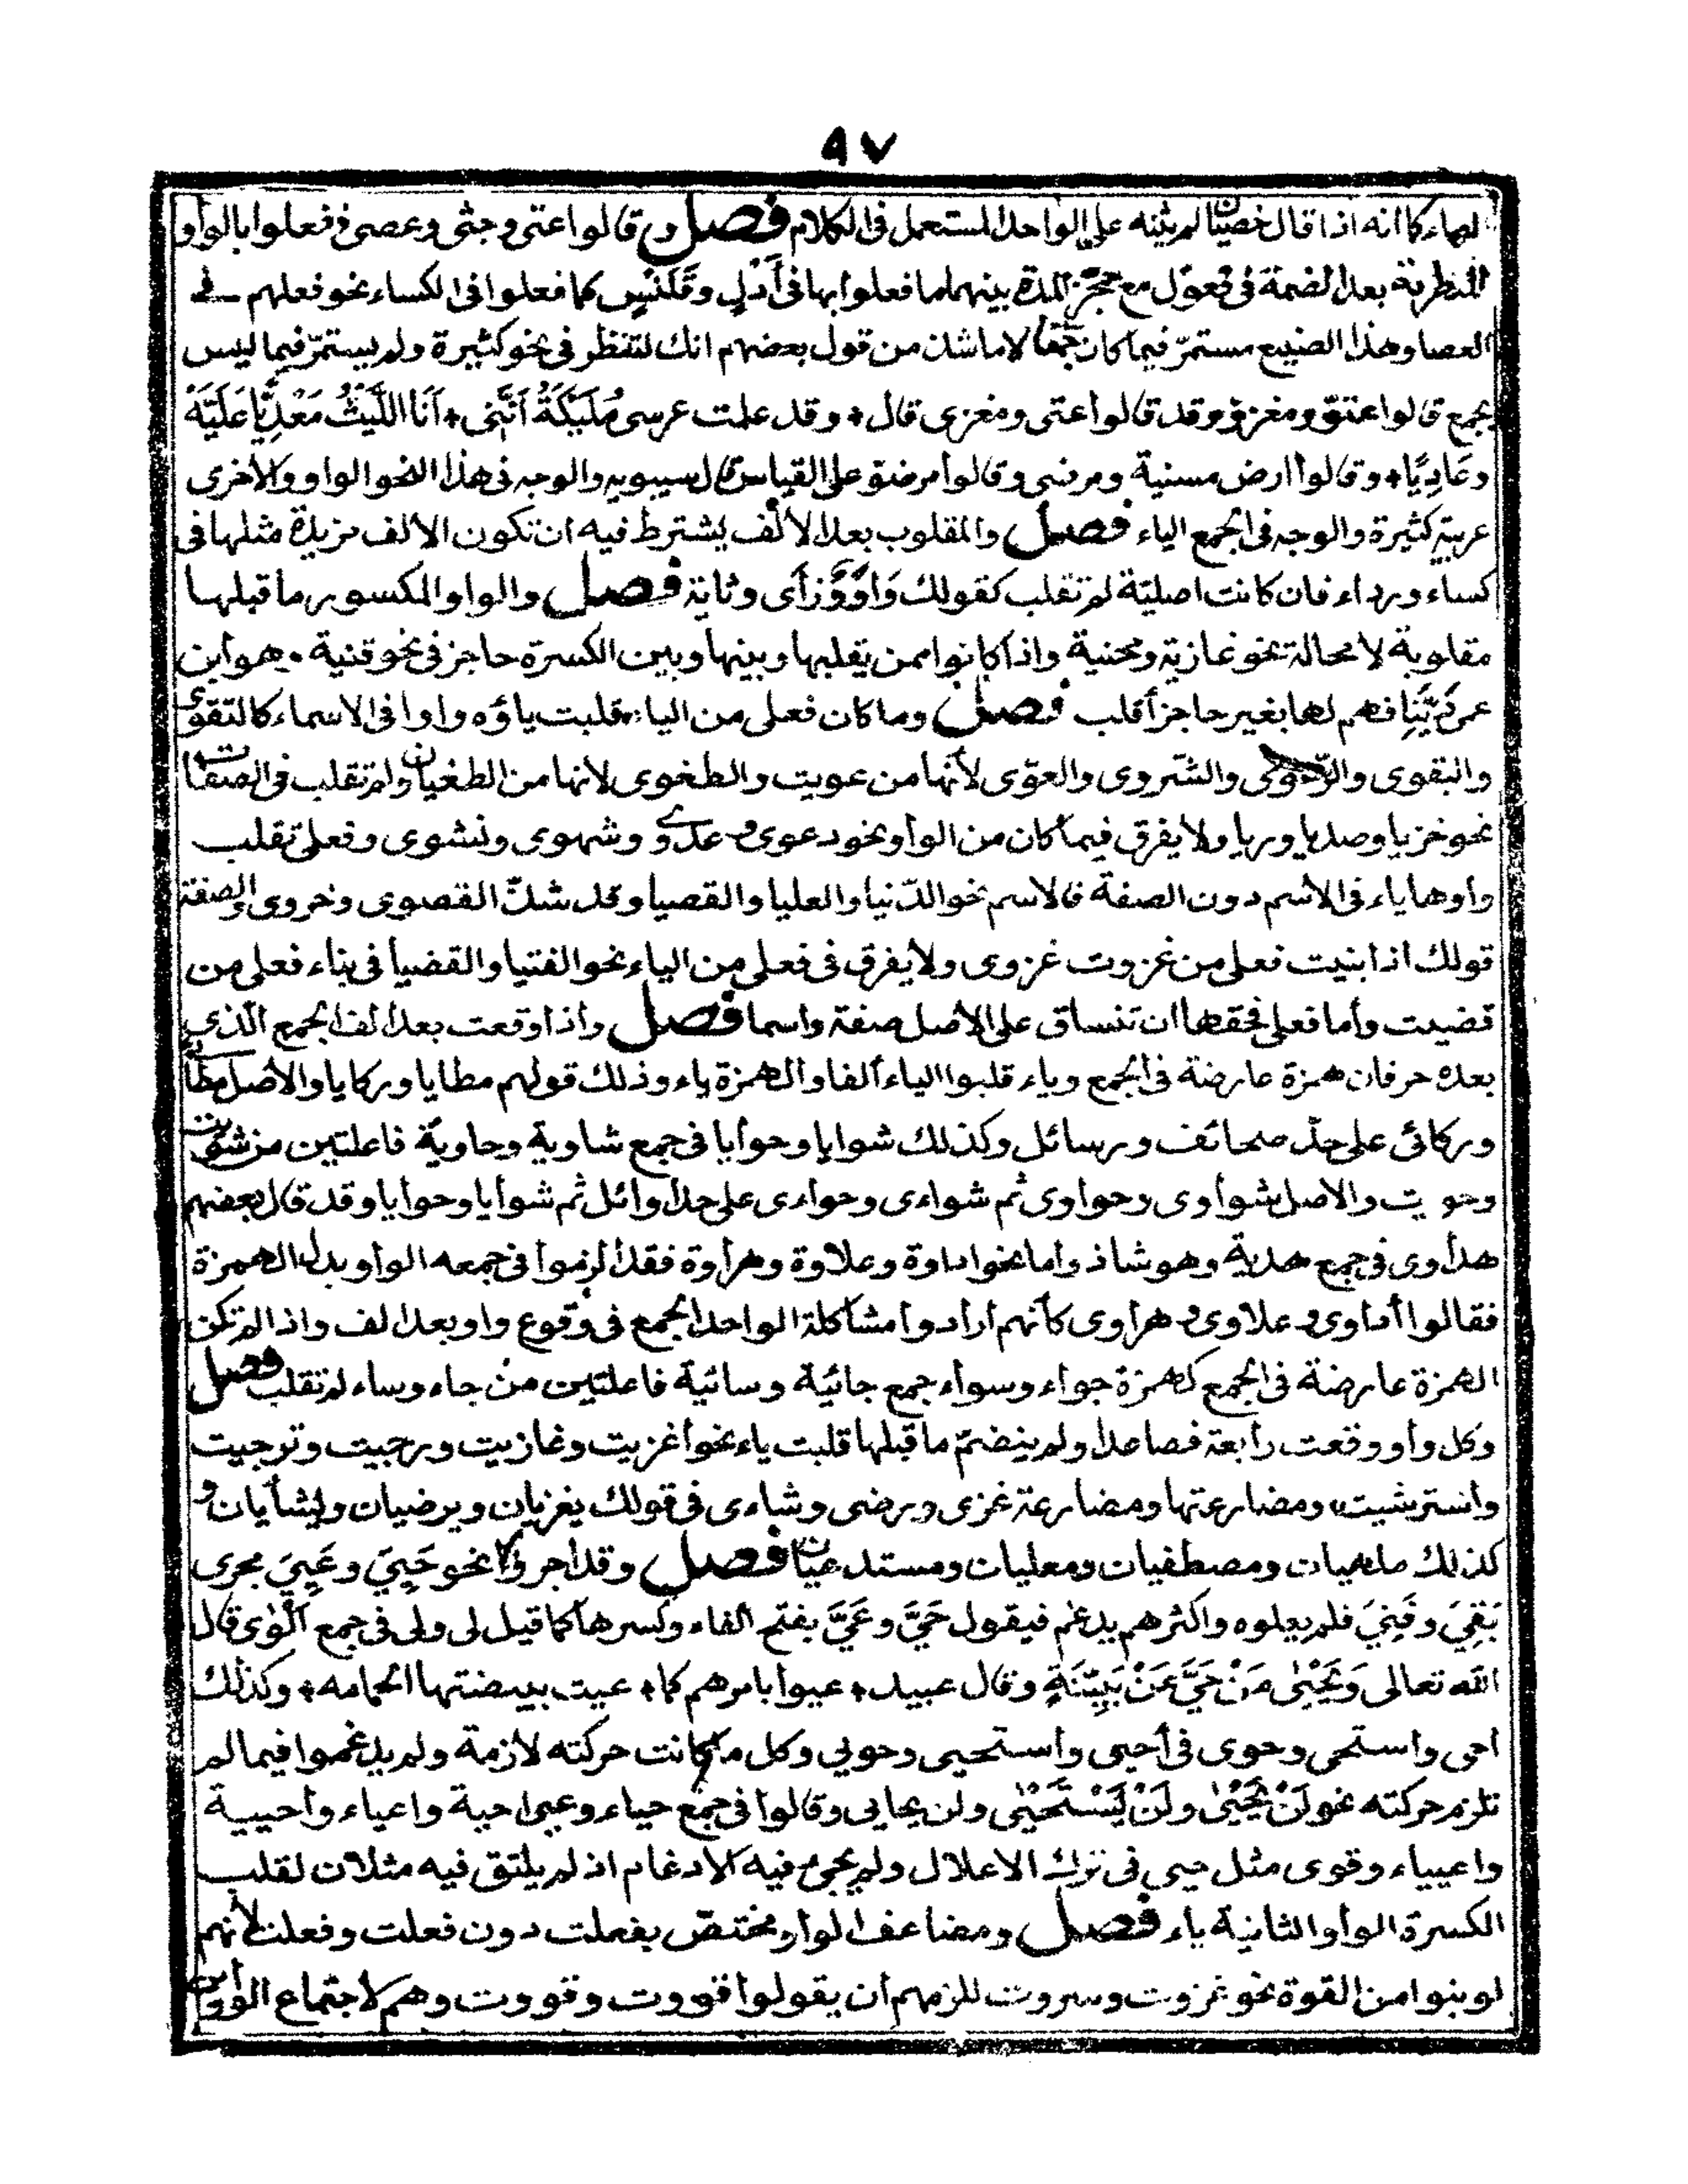 ٩٧
لصاء كما انه اذا قال خصيان لم يثنه على الواحد المستعمل فى الكلام فصل وقالوا عتى وجثى وعصى ففعلوا بالواو
المتطرفة بعد الضمة فى فعول مع حجز المدة بينهما ما فعلوا بها فى أَدْلٍ وقَلَنْسٍ كما فعلوا فى الكساء نحو فعلهم فى
العصا وهذا الصنيع مستمرّ فيما كان جمعا لا ماشذ من قول بعضهم انك لتنظر فى نحو كثيرة ولم يستمرّ فيما ليس
بجمع قالوا عتوّ ومغزوّ وقد قالوا عتى ومغزى قال وقد علمت عرسى مُلَيْكَةُ اَنَّنِى اَنَا اللَّيْثُ مَعْدِيًّا عَلَيْهِ
وعَادِيًا وقالوا أرض مسنية ومرضى وقالوا مرضوّ على القياس قال سيبويه والوجه فى هذا النحو الواو والأخرى
عربية كثيرة والوجه فى الجمع الياء فصل والمقلوب بعد الألف يشترط فيه ان تكون الألف مزيدة مثلها فى
كساء ورداء فان كانت اصليّة لم تقلب كقولك وَاوٌ وزَاى وثاية فصل والواو المكسور ما قبلها
مقلوبة لا محالة نحو غازية ومحنية واذا كانوا ممن يقلبها وبينها وبين الكسرة حاجز فى نحو قنية وهو ابن
عمى دِنْيًا فهم لها بغير حاجز أقلب فصل وما كان فعلى من الياء قلبت ياؤه واوا فى الاسماء كالتقوى
والبقوى والرعوى والشروى والعوّى لأنها من عويت والطغوى لانها من الطغيان ولم تقلب فى الصفات
نحو خزيا وصديا وريا ولا يفرق فيما كان من الواو نحو دعوى وعدوى وشهوى ونشوى وفعلى تقلب
واوها ياء فى الاسم دون الصفة فالاسم نحو الدّنيا والعليا والقصيا وقد شذّ القصوى وحزوى والصفة
قولك اذا بنيت فعلى من غزوت غزوى ولا يفرق فى فعلى من الياء نحو الفتيا والقضيا فى بناء فعلى من
قضيت وأما فعلى فحقها ان تنساق على الأصل صفة واسما فصل واذا وقعت بعد الف الجمع الّذى
بعده حرفان همزة عارضة فى الجمع وياء قلبوا الياء ألفا والهمزة ياء وذلك قولهم مطايا وركايا والأصل مطائى
وركائى على حدّ صحائف ورسائل وكذلك شوايا وحوايا فى جمع شاوية وحاوية فاعلتين من شويت
وحويت والاصل شواوى وحواوى ثم شواءى وحواءى على حد أوائل ثم شوايا وحوايا وقد قال بعضهم
هداوى فى جمع هدية وهو شاذ وأما نحو اداوة وعلاوة وهراوة فقد ألزموا فى جمعه الواو بدل الهمزة
فقالوا أداوى وعلاوى وهراوى كأنهم أرادوا مشاكلة الواحد الجمع فى وقوع واو بعد الف واذا لم تكن
الهمزة عارضة فى الجمع كهمزة جواء وسواء جمع جائية وسائية فاعلتين من جاء وساء لم تقلب فصل
وكل واو وقعت رابعة فصاعدا ولم ينضمّ ما قبلها قلبت ياء نحو أغزيت وغازيت ورجيت وترجيت
واسترشيت ومضارعتها ومضارعة غزى ورضى وشاءى فى قولك يغزيان ويرضيان ويشأيان و
كذلك ملهيات ومصطفيات ومعليات ومستدعيات فصل وقد اجروا نحو حَيِىَ وعَيِىَ مجرى
بَقِىَ وفَنِىَ فلم يعلوه واكثرهم يدغم فيقول حَىَّ وعَىَّ بفتح الفاء وكسرها كما قيل لى ولى فى جمع ألْوى قال
الله تعالى وَيَحْيٰى مَنْ حَىَّ عَنْ بَيِّنَةٍ وقال عبيد عيوا بامرهم كما عيت ببيضتها الحمامه وكذلك
احى واستحى وحوى فى أحيى واستحيى وحويى وكل ما كانت حركته لازمة ولم يدغموا فيما لم
تلزم حركته نحو لَنْ يُحْيٰى ولَنْ يَسْتَحْيٰى ولن يحايى وقالوا فى جمع حياء وعيى احية واعياء وأحيية
واعيياء وقوى مثل حيى فى ترك الاعلال ولم يجئ فيه الادغام اذ لم يلتق فيه مثلان لقلب
الكسرة الواو الثانية ياء فصل ومضاعف الواو مختصّ بفعلت دون فعلت وفعلت لأنهم
لو بنوا من القوة نحو غزوت وسروت للزمهم أن يقولوا قووت وقووت وهم لاجتماع الواوين